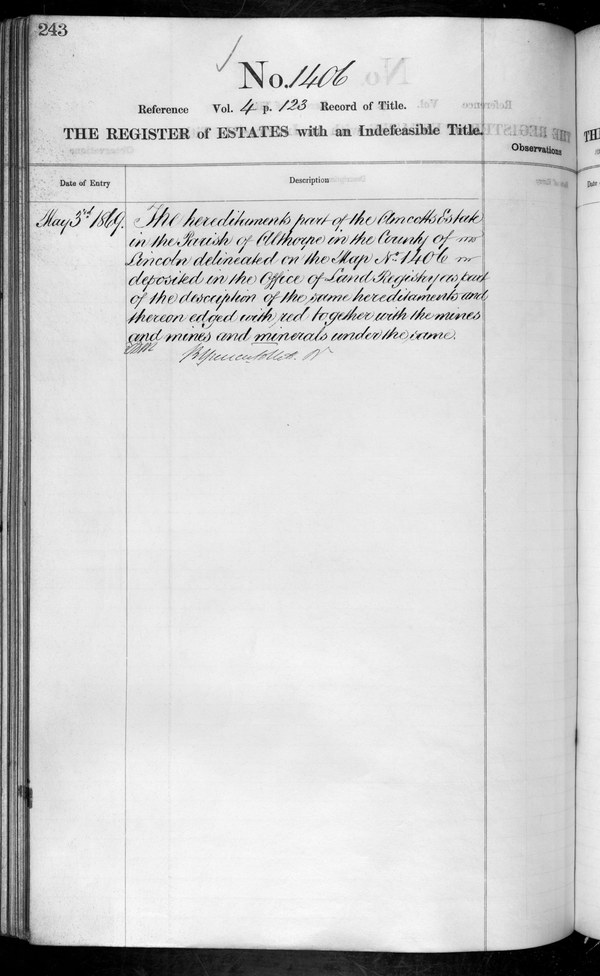 243
No. 1406
Reference Vol. 4 p. 123 Record of Title.
THE REGISTER of ESTATES with an Indefeasible Title.
Observations
Date of Entry
Description
May 3rd 1869. The hereditaments part of the Amcotts Estate
in the Parish of Althorpe in the County of
Lincoln delineated on the Map No. 1406
deposited in the Office of Land Registry as part
of the description of the same hereditaments and
thereon edged with red together with the mines
and mines and minerals under the same.